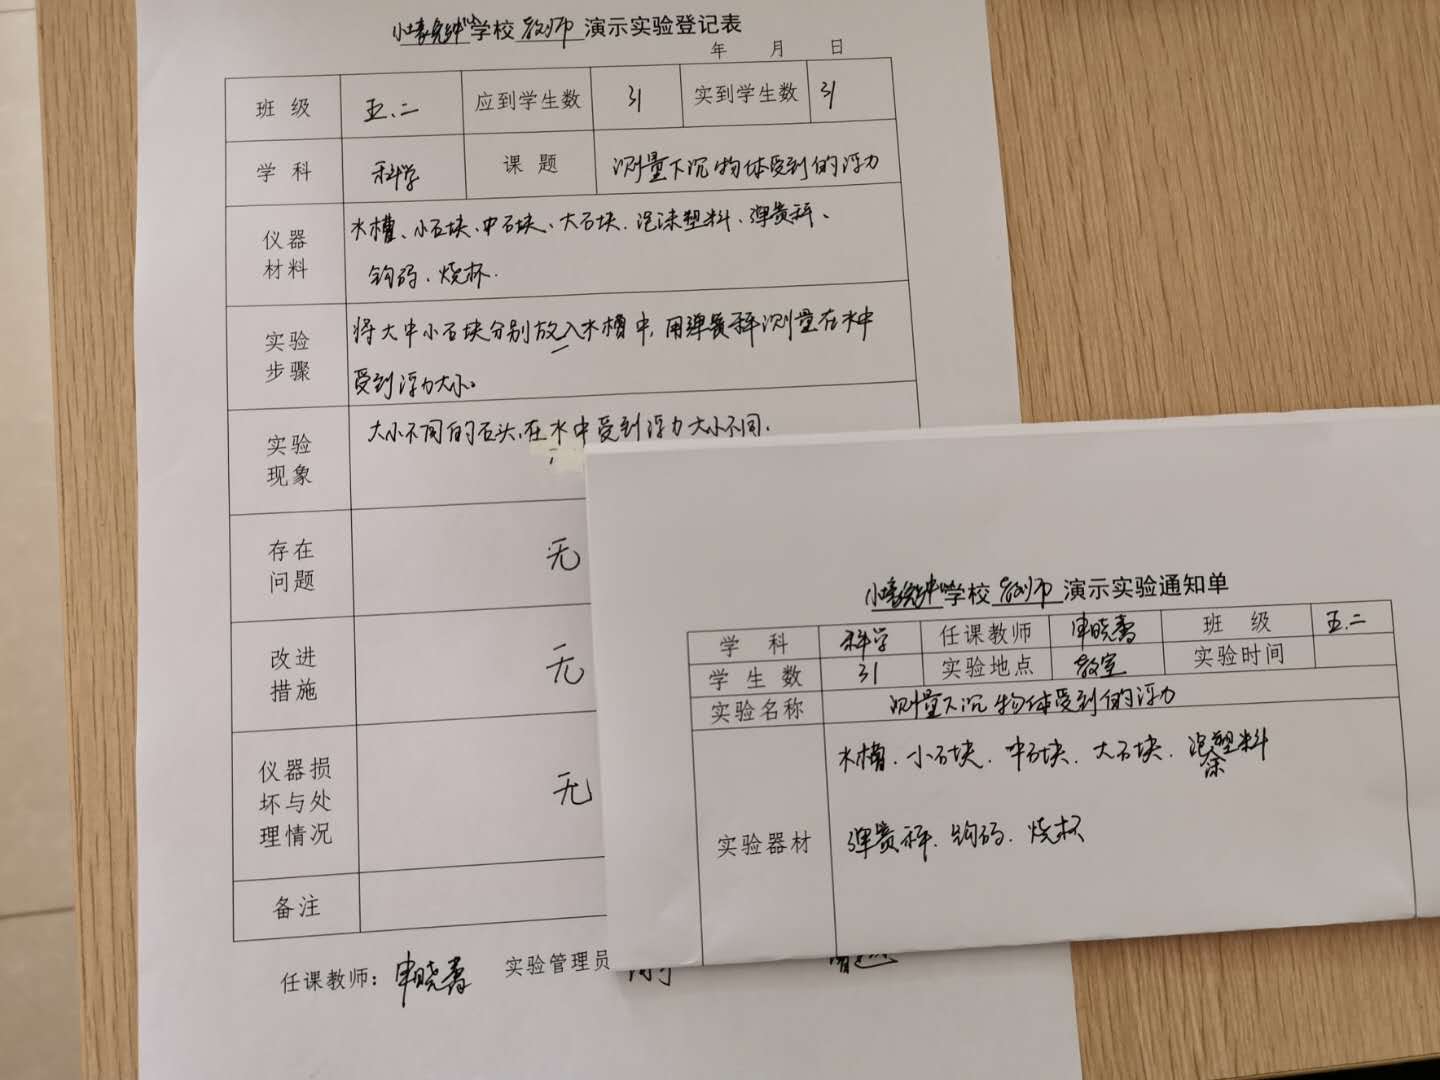 学校 教师 演示实验登记表
年 月 日
班 级 五.二 应到学生数 31 实到学生数 31
学 科 科学 课 题 测量下沉物体受到的浮力
仪器
材料
水槽、小石块、中石块、大石块、泡沫塑料、弹簧秤、
钩码、烧杯.
实验
步骤
将大中小石块分别放入水槽中,用弹簧秤测量在水中
受到浮力大小。
实验
现象
大小不同的石头,在水中受到浮力大小不同.
存在
问题
无
改进
措施
无
仪器损
坏与处
理情况
无
备注
任课教师: 申晓青 实验管理员
学校 教师 演示实验通知单
学 科 科学 任课教师 申晓青 班 级 五.二
学 生 数 31 实验地点 教室 实验时间
实验名称 测量下沉物体受到的浮力
实验器材
水槽、小石块、中石块、大石块、泡沫塑料
弹簧秤、钩码、烧杯